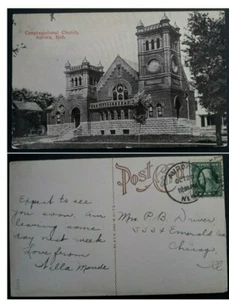 Congregational Church,
Aurora, Neb.
Post C
AURORA
NEB
Expect to see
you soon am
leaving some
day next week
Love from
Willa Maude
Mrs P. B. Driver
5534 Emerald
Chicago
Ill